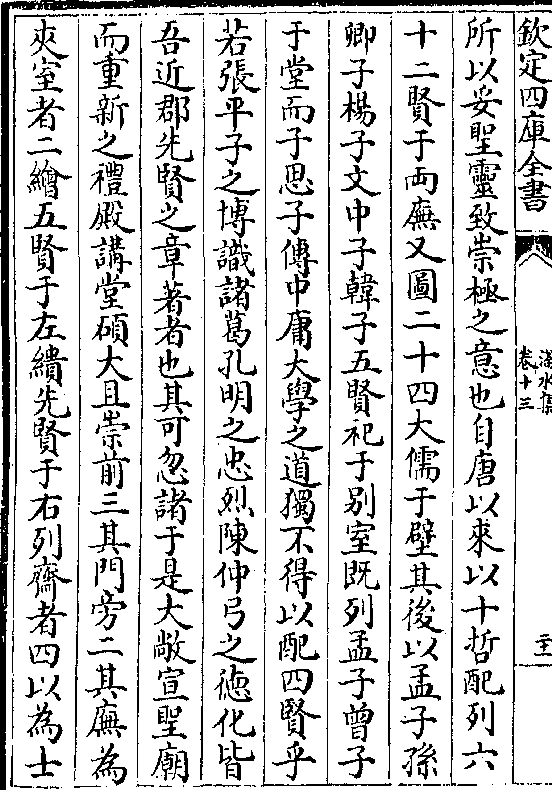 欽定四庫全書
卷十三
所以妥聖靈致崇極之意也自唐以來以十哲配列六
十二賢于兩廡又圖二十四大儒于壁其後以孟子孫
卿子楊子文中子韓子五賢祀于别室既列孟子曾子
于堂而子思子傳中庸大學之道獨不得以配四賢乎
若張平子之博識諸葛孔明之忠烈陳仲弓之德化皆
吾近郡先賢之章著者也其可忽諸于是大敞宣聖廟
而重新之禮殿講堂碩大且崇前三其門旁二其廡為
夾室者二繪五賢于左繢先賢于右列齋者四以為士